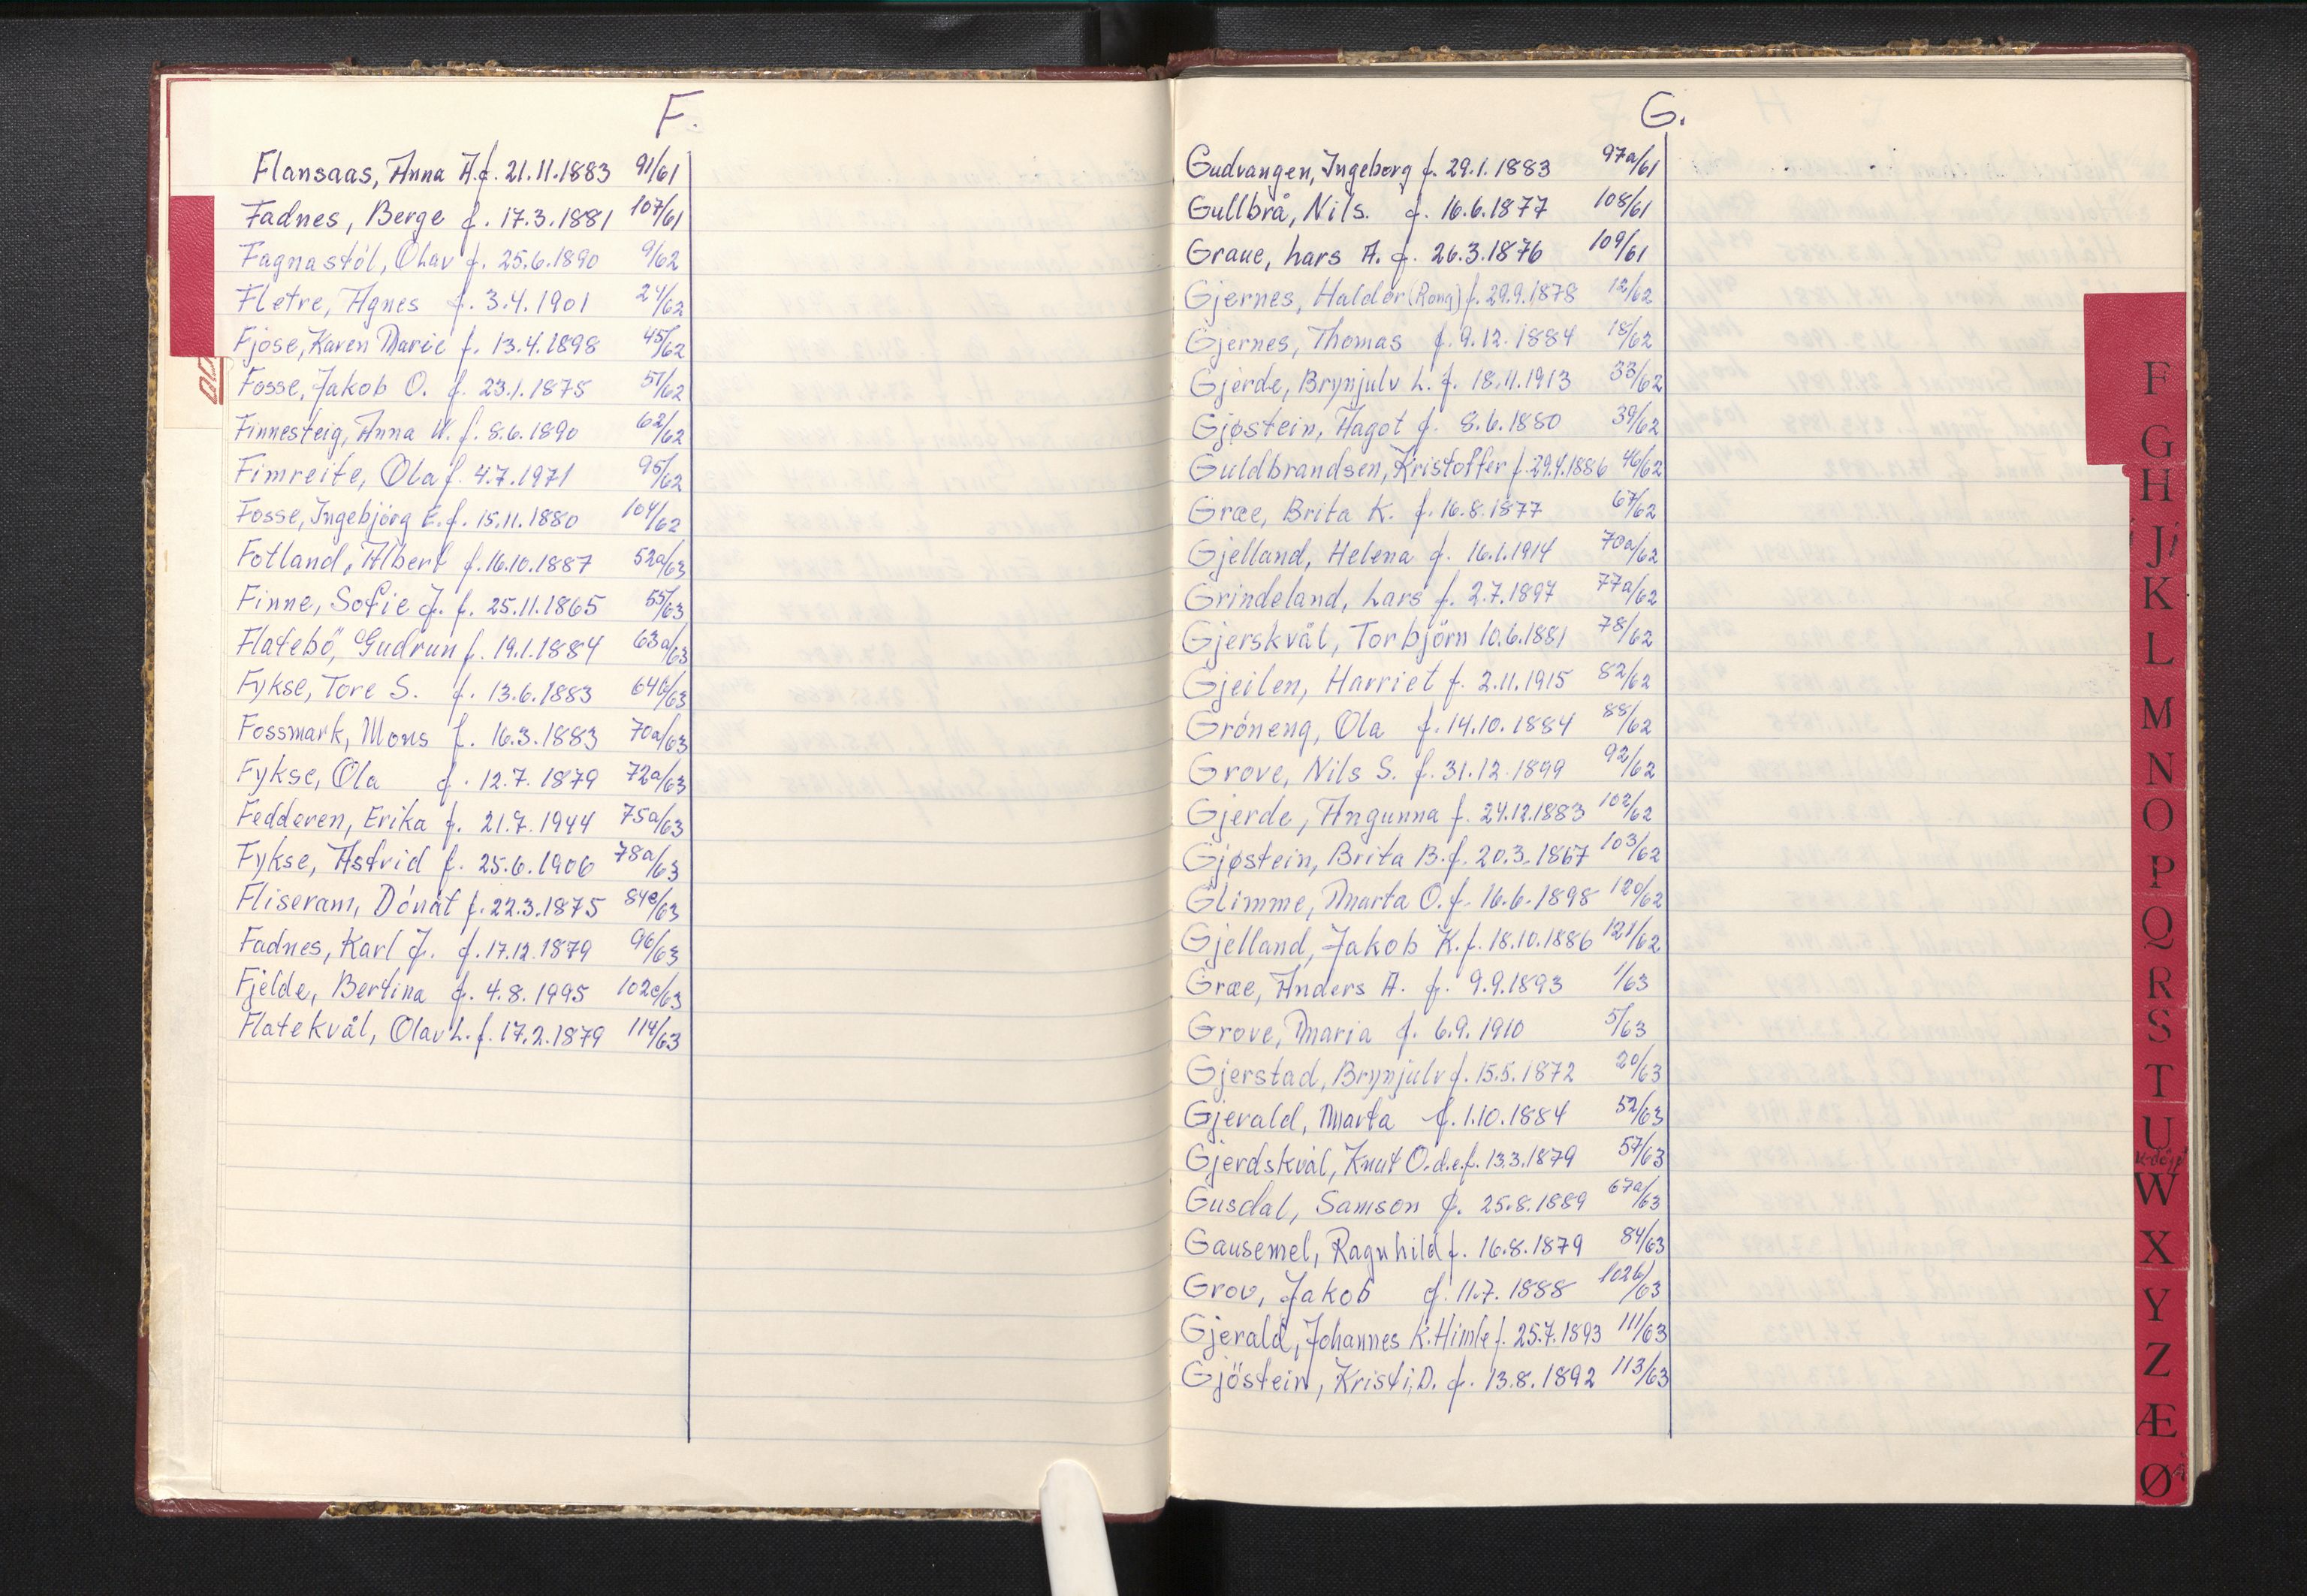 F.
Flansaas, Anna A. f. 21.11.1883 91/61
Fadnes, Berge f. 17.3.1881 107/61
Fagnastöl, Olav f. 25.6.1890 9/62
Fletre, Agnes f. 3.4.1901 24/62
Fjose, Karen Marie f. 13.4.1898 45/62
Fosse, Jakob O. f. 23.1.1875 51/62
Finnesteig, Anna W. f. 8.6.1890 62/62
Fimreite, Ola f. 4.7.1971 95/62
Fosse, Ingebjörg E. f. 15.11.1880 104/62
Fotland, Albert f. 16.10.1887 52a/63
Finne, Sofie J. f. 25.11.1865 55/63
Flatebö, Gudrun f. 19.1.1884 63a/63
Fykse, Tore S. f. 13.6.1883 64b/63
Fossmark, Mons f. 16.3.1883 70a/63
Fykse, Ola f. 12.7.1879 72a/63
Fedderen, Erika f. 21.7.1944 75a/63
Fykse, Astrid f. 25.6.1906 78a/63
Fliseram, Dónát f. 22.3.1875 84e/63
Fadnes, Karl J. f. 17.12.1879 96/63
Fjelde, Bertina f. 4.8.1995 102c/63
Flatekvål, Olav L. f. 17.2.1879 114/63
G.
Gudvangen, Ingeborg f. 29.1.1883 97a/61
Gullbrå, Nils. f. 16.6.1877 108/61
Graue, Lars A. f. 26.3.1876 109/61
Gjernes, Haldor (Rong) f. 29.9.1878 12/62
Gjernes, Thomas f. 9.12.1884 18/62
Gjerde, Brynjulv L. f. 18.11.1913 33/62
Gjøstein, Hagot f. 8.6.1880 39/62
Guldbrandsen, Kristoffer f. 29.4.1886 46/62
Græe, Brita K. f. 16.8.1877 67/62
Gjelland, Helena f. 16.1.1914 70a/62
Grindeland, Lars f. 2.7.1897 77a/62
Gjerskvål, Torbjörn 10.6.1881 78/62
Gjeilen, Harriet f. 2.11.1915 82/62
Gröneng, Ola f. 14.10.1884 88/62
Grove, Nils S. f. 31.12.1899 92/62
Gjerde, Angunna f. 24.12.1883 102/62
Gjøstein, Brita B. f. 20.3.1867 103/62
Glimme, Marta O. f. 16.6.1898 120/62
Gjelland, Jakob K. f. 18.10.1886 121/62
Græe, Anders A. f. 9.9.1893 1/63
Grove, Maria f. 6.9.1910 5/63
Gjerstad, Brynjulv f. 15.5.1872 20/63
Gjerald, Marta f. 1.10.1884 52/63
Gjerdskvål, Knut O. d.e. f. 13.3.1879 57/63
Gusdal, Samson f. 25.8.1889 67a/63
Gausemel, Ragnhild f. 16.8.1879 84/63
Grov, Jakob f. 11.7.1888 102b/63
Gjerald, Johannes K. Himle f. 25.7.1893 111/63
Gjöstein, Kristi, D. f. 13.8.1892 113/63
F
G
H
J
K
L
M
N
O
P
Q
R
S
T
U
W
X
Y
Z
Æ
Ø